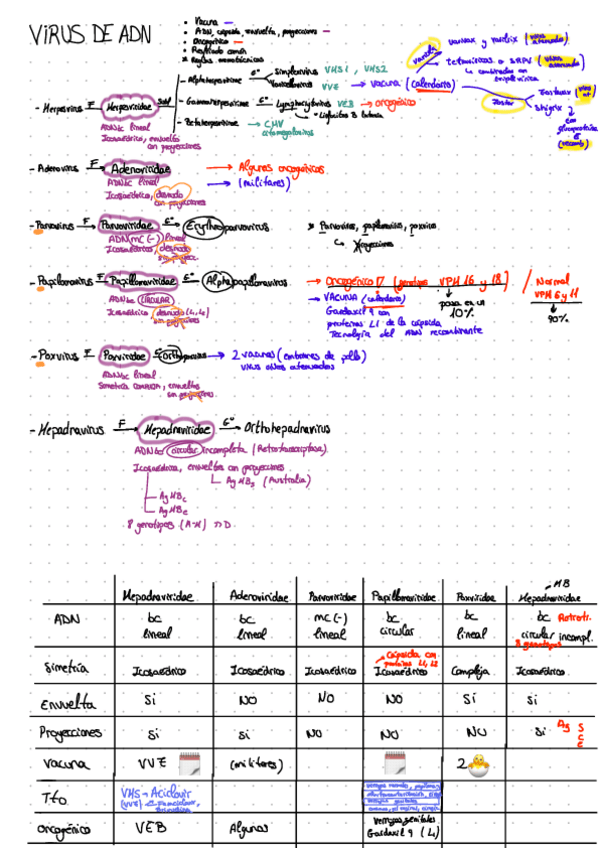 VIRUS DE ADN
• Vacuna
• ADN, cápsida, envuelta, proyecciones
• Oncogénico
• Resaltado común
* Reglas mnemotécnicas
- Herpesvirus F Herpesviridae Subf
ADNbc lineal
Icosaédrico, envuelto con proyecciones
- Alphaherpesvirinae Gº Simplexvirus VHS1, VHS2
Varicellovirus VVZ → vacuna (calendario)
- Gammaherpesvirinae Gº Lymphocryptovirus VEB → oncogénico
- Betaherpesvirinae → CMV
citomegalovirus
varicela
varivax y varilrix (virus atenuado)
tetravírica o SRPV (virus atenuado)
Zoster
Zostavax
Shigrix
glucoproteína E
(recomb)
- Adenovirus F Adenoviridae → Algunos oncogénicos
ADNbc lineal → (militares)
Icosaédrico, desnudo con proyecciones
- Parvovirus F Parvoviridae Gº Erythroparvovirus
ADN mc (-) lineal
Icosaédrico, desnudo sin proyecc.
* Parvovirus, papilomavirus, poxvirus
↳ Xproyecciones
- Papilomavirus F Papillomaviridae Gº Alphapapillomavirus → Oncogénico (genotipos VPH 16 y 18) / Normal VPH 6 y 11
ADNbc CIRCULAR → VACUNA (calendario)
Icosaédrico desnudo (L1, L2) sin proyecciones
Gardasil 9 con
proteínas L1 de la cápsida
Tecnología del ADN recombinante
pasa en un 10%
90%
- Poxvirus F Poxviridae Gº Orthopoxvirus → 2 vacunas (embriones de pollo)
virus vivos atenuados
ADNbc lineal
Simetría COMPLEJA, envueltos sin proyecciones
- Hepadnavirus F Hepadnaviridae Gº Orthohepadnavirus
ADNbc circular incompleta (Retrotranscriptasa)
Icosaédrica, envuelta con proyecciones
↳ AgHBs (Australia)
AgHBc
AgHBe
8 genotipos (A-H) D.
Hepadnaviridae Adenoviridae Parvoviridae Papillomaviridae Poxviridae HB Hepadnaviridae
ADN bc lineal bc lineal mc (-) lineal bc circular bc lineal bc Retrotr. circular incompl. 8 genotipos
Simetría Icosaédrico Icosaédrico Icosaédrico Cápsida con proteínas L1, L2 Icosaédrico Compleja Icosaédrico
Envuelta Si NO NO NO Si Si
Proyecciones Si Si NO NO NO Si Ag S C E
Vacuna VVZ (militares) 2
Tto VHS → Aciclovir
Oncogénico VEB Algunos verrugas genitales Gardasil 9 (L1)